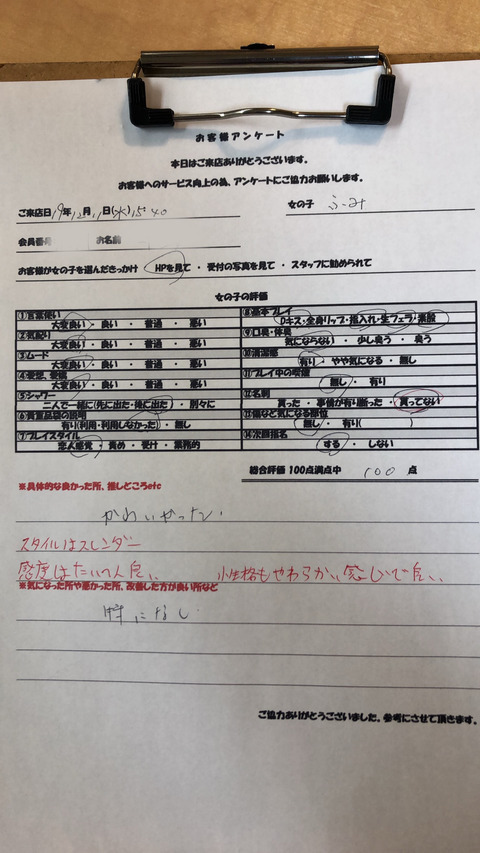 お客様アンケート
本日はご来店ありがとうございます。
お客様へのサービス向上の為、アンケートにご協力お願いします。
ご来店日 19年12月11日(水)15:40 女の子 ふみ
会員番号 お名前
お客様が女の子を選んだきっかけ HPを見て ・ 受付の写真を見て ・ スタッフに勧められて
女の子の評価
①言葉使い
大変良い ・ 良い ・ 普通 ・ 悪い
②気配り
大変良い ・ 良い ・ 普通 ・ 悪い
③ムード
大変良い ・ 良い ・ 普通 ・ 悪い
④愛想、愛嬌
大変良い ・ 良い ・ 普通 ・ 悪い
⑤シャワー
二人で一緒に(先に出た・後に出た) ・ 別々に
⑥貴重品袋の説明
有り(利用・利用しなかった) ・ 無し
⑦プレイスタイル
恋人感覚 ・ 責め ・ 受け ・ 業務的
⑧基本プレイ
Dキス・全身リップ・指入れ・生フェラ・素股
⑨口臭・体臭
気にならない ・ 少し臭う ・ 臭う
⑩清潔感
有り ・ やや気になる ・ 無し
⑪プレイ中の喫煙
無し ・ 有り
⑫名刺
貰った ・ 事情が有り断った ・ 貰ってない
⑬傷など気になる部位
無し ・ 有り( )
⑭次回指名
する ・ しない
総合評価 100点満点中 100 点
※具体的な良かった所、推しどころetc
かわいかった。
スタイルはスレンダー
感度はたいへん良い 性格もやわらかい感じで良い
※気になった所や悪かった所、改善した方が良い所など
特になし
ご協力ありがとうございました。参考にさせて頂きます。